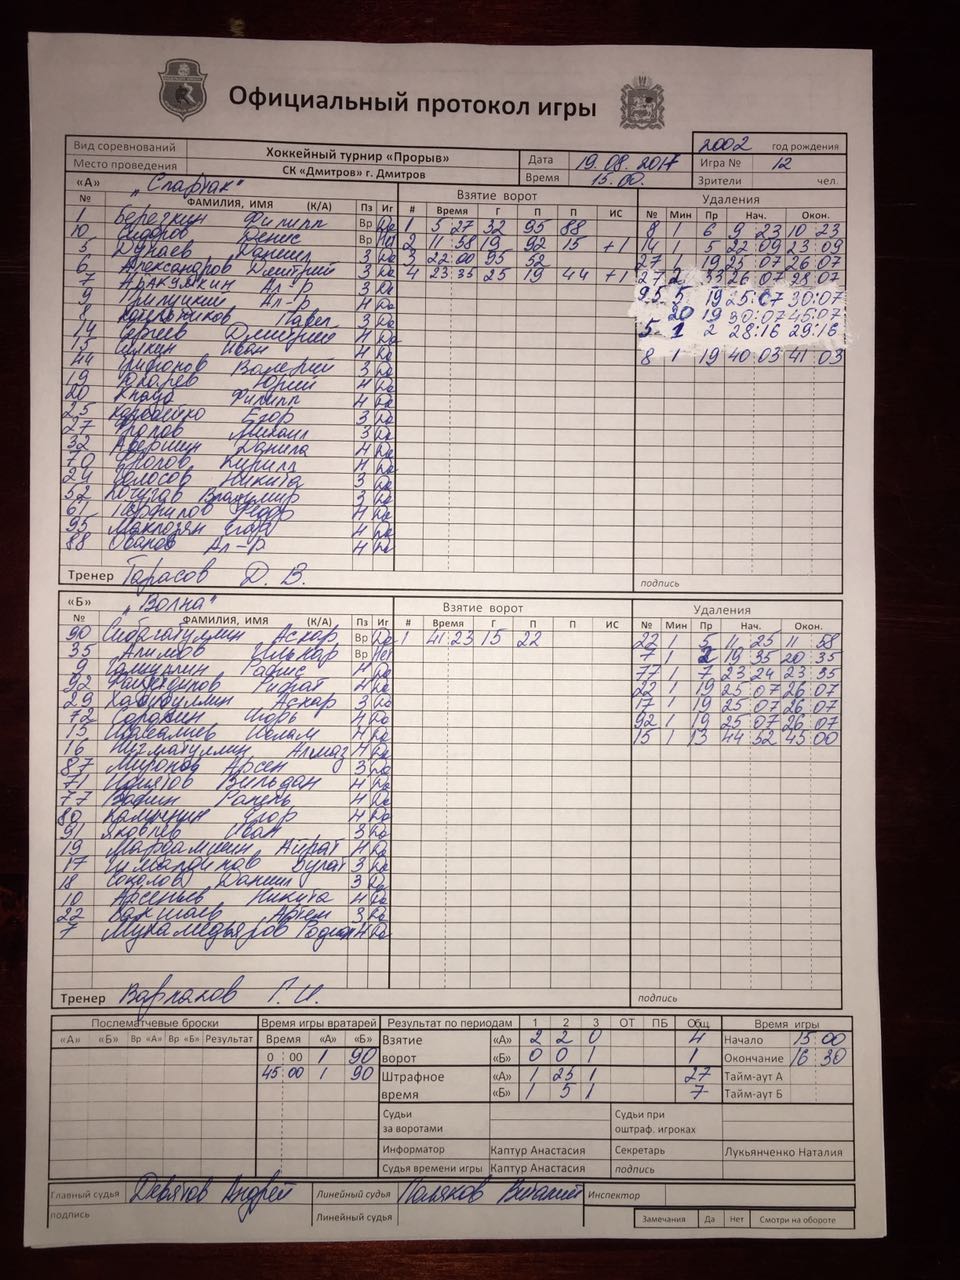 Официальный протокол игры
Вид соревнований Хоккейный турнир «Прорыв» Дата 19.08.2017 2002 год рождения
Место проведения СК «Дмитров» г. Дмитров Время 15.00. Игра № 12
Зрители чел.
«А» „Спартак" Взятие ворот Удаления
№ ФАМИЛИЯ, ИМЯ (К/А) Пз Иг # Время Г П П ИС № Мин Пр Нач. Окон.
1 Березкин Филипп Вр Да 1 5 27 32 95 88 8 1 6 9 23 10 23
10 Сидоров Денис Вр Нет 2 11 58 19 92 15 +1 14 1 5 22 09 23 09
5 Дунаев Даниил З Да 3 22:00 95 52 27 1 19 25 07 26 07
6 Александров Дмитрий З Да 4 23:35 25 19 44 +1 27 2 33 26 07 28 07
7 Аракумкин Ал-р З Да 95 5 19 25:07 30:07
9 Ал-р Н Да 20 19 30:07 45:07
8 Павел З Да 5 1 2 28:16 29:16
14 Сергеев Дмитрий Н Да 8 1 19 40 03 41 03
15 Иван Н Да
44 Трифонов Валерий З Да
19 Юрий Н Да
20 Филипп Н Да
25 Егор З Да
27 Фролов Михаил З Да
32 Аверкин Данила Н Да
70 Кирилл Н Да
24 Никита З Да
52 Владимир З Да
61 Н Да
95 Егор Н Да
88 Ал-р Н Да
Тренер Тарасов Д. В. подпись
«Б» „Волна" Взятие ворот Удаления
№ ФАМИЛИЯ, ИМЯ (К/А) Пз Иг # Время Г П П ИС № Мин Пр Нач. Окон.
90 Сибагатуллин Аскар Вр Да 1 41 23 15 22 22 1 5 11 25 11 58
35 Алимов Ильнар Вр Нет 7 1 2 19 35 20 35
9 Н Да 77 1 7 23 24 23 35
92 Н Да 22 1 19 25 07 26 07
29 Хабибуллин Аскар З Да 17 1 19 25 07 26 07
72 Сорокин Игорь Н Да 92 1 19 25 07 26 07
15 Н Да 15 1 13 44 52 45 00
16 Нигматуллин Алмаз Н Да
87 Миронов Арсен З Да
71 Идиятов Вильдан Н Да
77 Вафин Н Да
80 Егор Н Да
91 Яковлев Иван З Да
19 Айрат Н Да
17 Булат З Да
18 Соколов Даниил З Да
10 Арсеньев Никита Н Да
22 Артем З Да
7 Мухамедьяров Н Да
Тренер Варламов Г. И. подпись
Послематчевые броски Время игры вратарей Результат по периодам 1 2 3 ОТ ПБ Общ. Время игры
«А» «Б» Вр «А» Вр «Б» Результат Время «А» «Б» Взятие ворот «А» 2 2 0 4 Начало 15 00
0 00 1 90 «Б» 0 0 1 1 Окончание 16 30
45 00 1 90 Штрафное время «А» 1 25 1 27 Тайм-аут А
«Б» 1 5 1 7 Тайм-аут Б
Судьи за воротами Судьи при оштраф. игроках
Информатор Каптур Анастасия Секретарь Лукьянченко Наталия
Судья времени игры Каптур Анастасия подпись
Главный судья Девятов Андрей Линейный судья Поляков Виталий Инспектор
подпись Линейный судья Замечания Да Нет Смотри на обороте